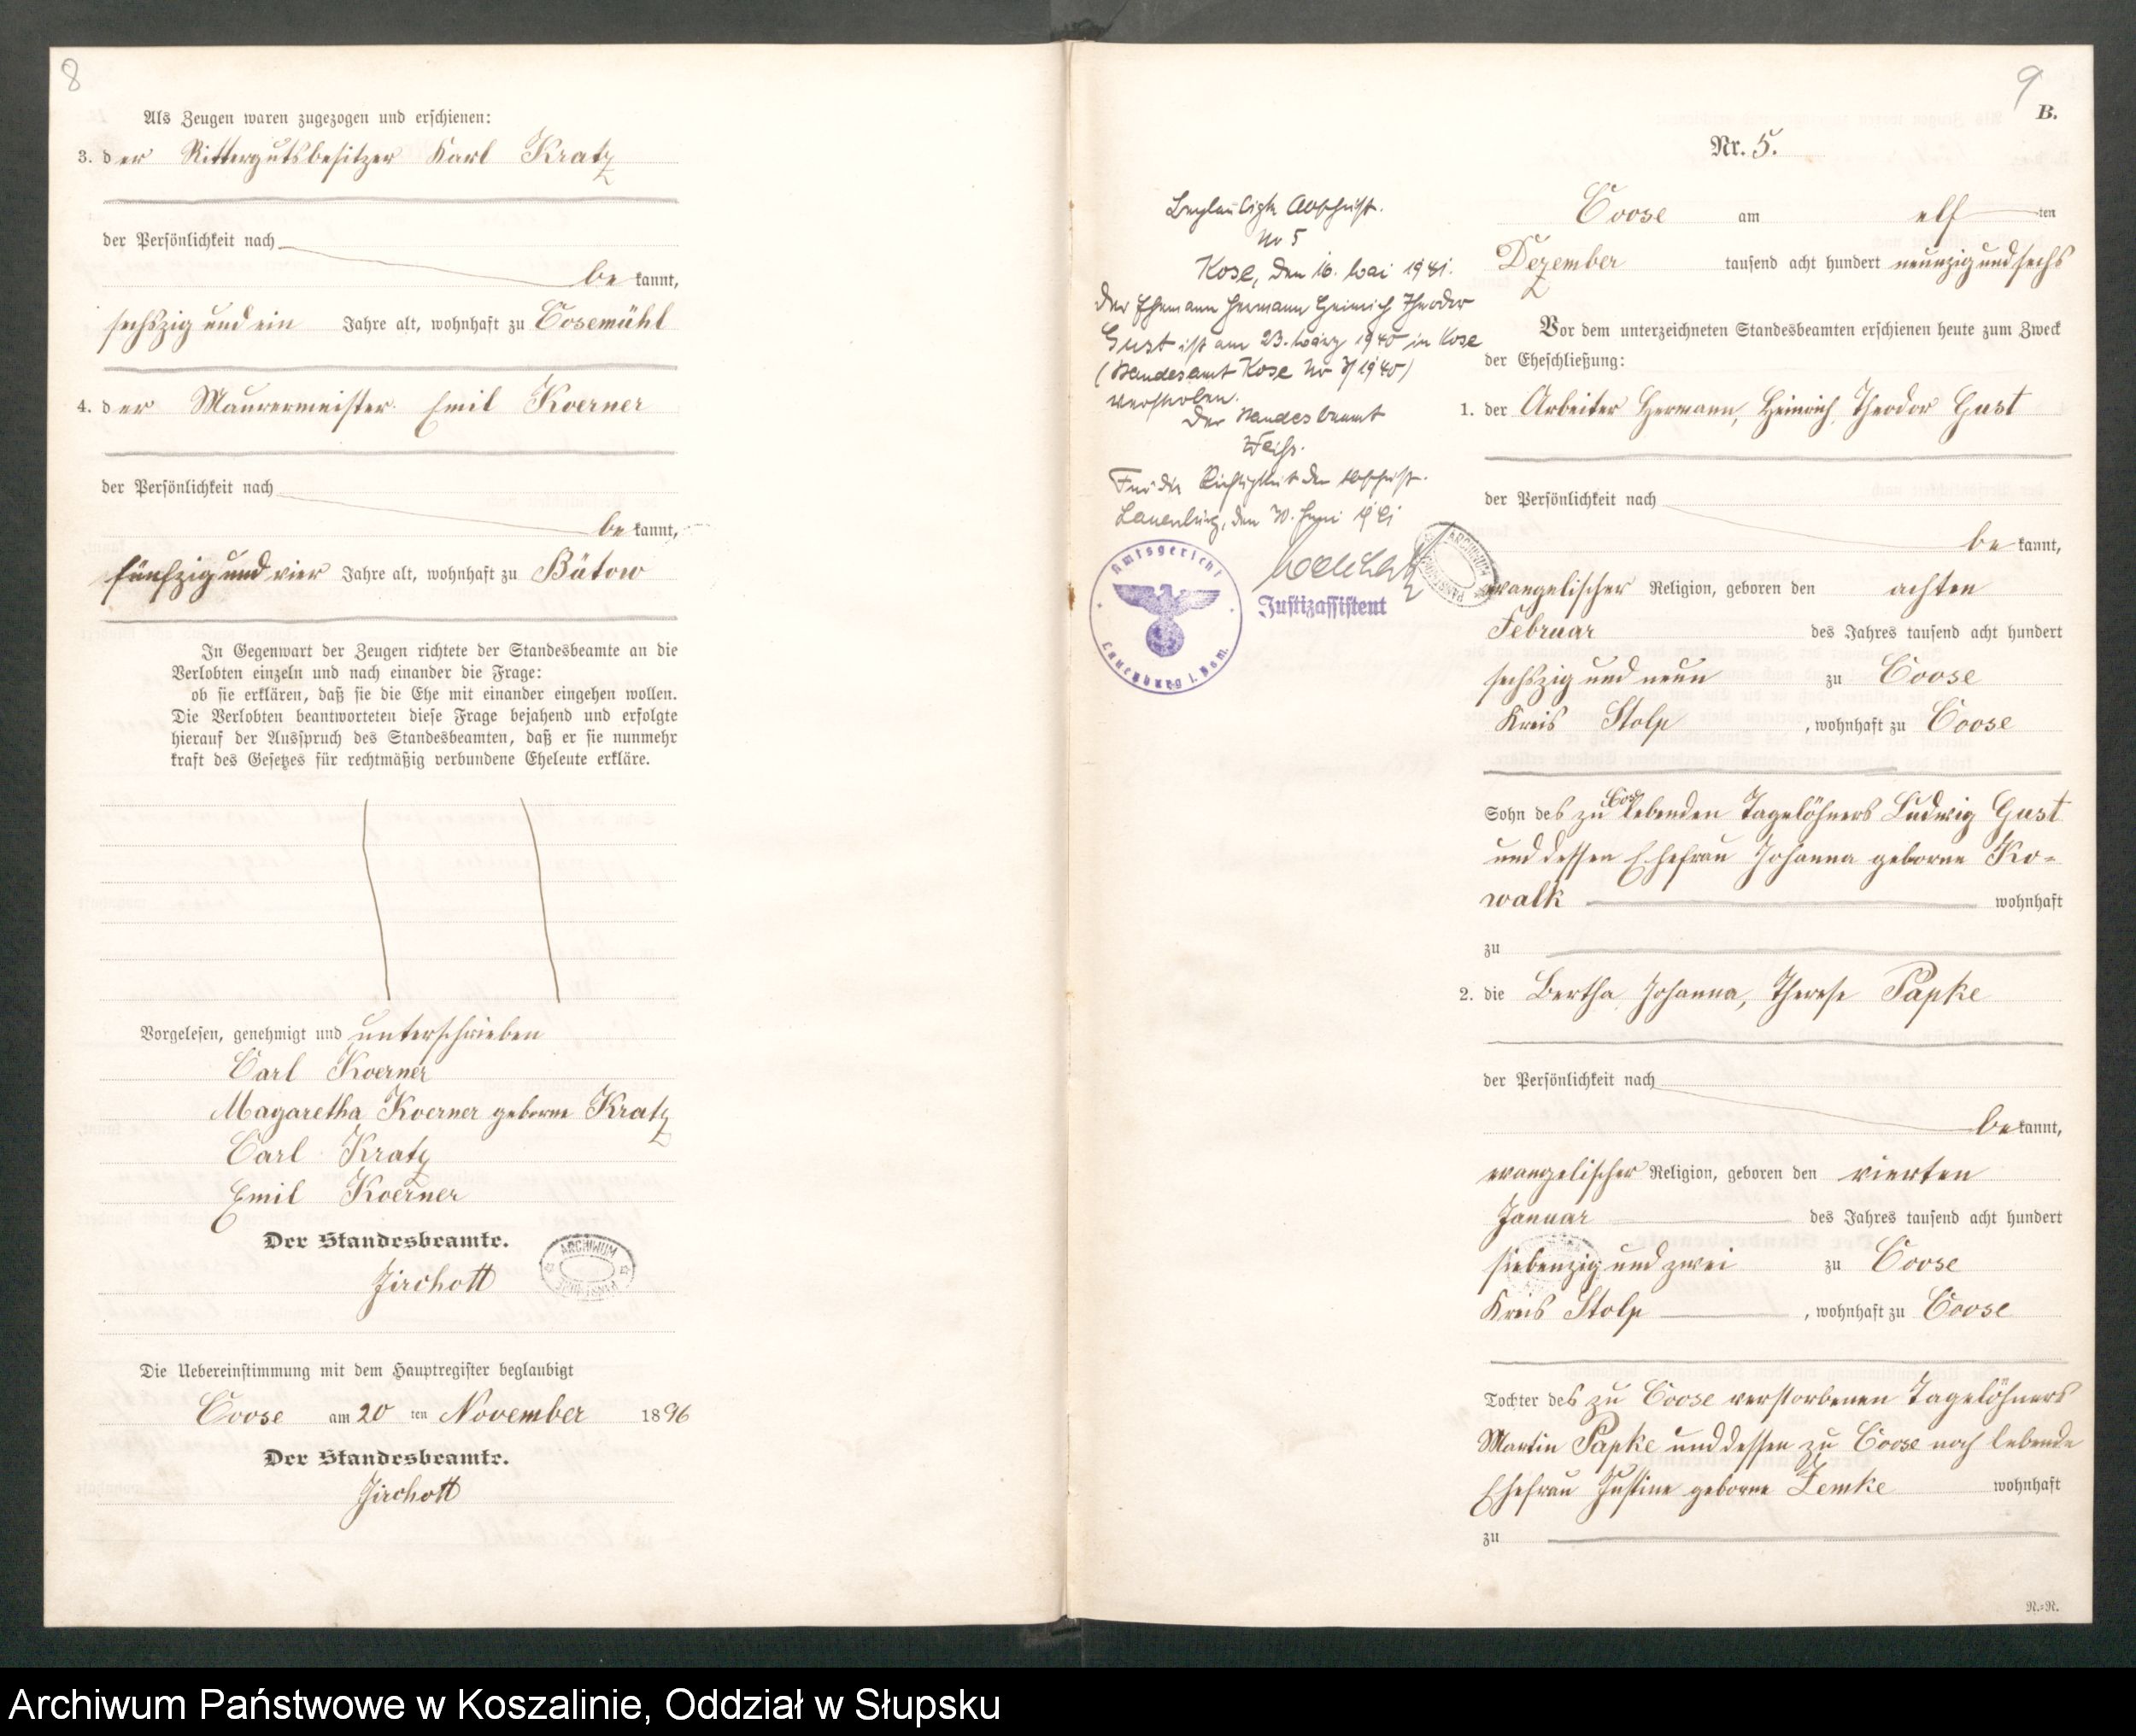 8
Als Zeugen waren zugezogen und erschienen:
3. der Rittergutsbesitzer Karl Kratz
der Persönlichkeit nach
be kannt,
sechszig und ein Jahre alt, wohnhaft zu Cosemühl
4. der Maurermeister Emil Koerner
der Persönlichkeit nach
be kannt,
fünfzig und vier Jahre alt, wohnhaft zu Bütow
In Gegenwart der Zeugen richtete der Standesbeamte an die
Verlobten einzeln und nach einander die Frage:
ob sie erklären, daß sie die Ehe mit einander eingehen wollen.
Die Verlobten beantworteten diese Frage bejahend und erfolgte
hierauf der Ausspruch des Standesbeamten, daß er sie nunmehr
kraft des Gesetzes für rechtmäßig verbundene Eheleute erkläre.
Vorgelesen, genehmigt und unterschrieben
Carl Koerner
Magaretha Koerner geborne Kratz
Carl Kratz
Emil Koerner
Der Standesbeamte.
Jirchott
ARCHIWUM
Die Uebereinstimmung mit dem Hauptregister beglaubigt
Coose am 20 ten November 1896
Der Standesbeamte.
Jirchott
9
B.
Nr. 5.
Coose am elf ten
Dezember tausend acht hundert neunzig und sechs
Vor dem unterzeichneten Standesbeamten erschienen heute zum Zweck
der Eheschließung:
1. der Arbeiter Hermann, Heinrich, Theodor Gust
der Persönlichkeit nach
be kannt,
evangelischer Religion, geboren den achten
Februar des Jahres tausend acht hundert
sechszig und neun zu Coose
Kreis Stolp, wohnhaft zu Coose
Sohn des zu Coose lebenden Tagelöhners Ludwig Gust
und dessen Ehefrau Johanna geborne Ko-
walk wohnhaft
zu
2. die Bertha Johanna, Therese Papke
der Persönlichkeit nach
be kannt,
evangelischer Religion, geboren den vierten
Januar des Jahres tausend acht hundert
siebenzig und zwei zu Coose
Kreis Stolp, wohnhaft zu Coose
Tochter des zu Coose verstorbenen Tagelöhners
Martin Papke und dessen zu Coose noch lebende
Ehefrau Justine geborne Zemke wohnhaft
zu
R.=R.
Beglaubigte Abschrift.
No 5
Kose, den 16. Mai 1941.
Der Ehemann Hermann Heinrich Theodor
Gust ist am 23. März 1940 in Kose
(Standesamt Kose No 7/1940)
verstorben.
Der Standesbeamt
Weiß.
Für die Richtigkeit der Abschrift.
Lauenburg, den 30. Juni 1941
Justizassistent
Amtsgericht
Lauenburg i. Pom.
ARCHIWUM
Archiwum Państwowe w Koszalinie, Oddział w Słupsku